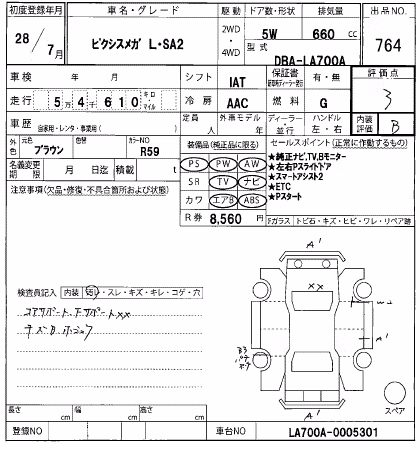 初度登録年月 車名・グレード 駆動 ドア数・形状 排気量 出品NO.
28/7月 ピクシスメガ L・SA2 2WD・4WD 5W 660 cc 764
型式 DBA-LA700A
車検 年 月 シフト IAT 保証書 有・無 評価点 3
走行 5万4千610 キロ マイル 冷房 AAC 燃料 G
車歴 自家用・レンタ・事業用( ) 定員 人 外車モデル 年 ディーラー 並行 ハンドル 左・右 内装評価 B
外色 元色 ブラウン 色替 カラーNO R59
装備品(純正品に限る) セールスポイント(正常に作動するもの)
名義変更期限 月 日迄 積載 t
PS PW AW
SR TV ナビ
カワ エアB ABS
★純正ナビ,TV,Bモニター
★左右Pスライドドア
★スマートアシスト2
★ETC
★Pスタート
注意事項(欠品・修復・不具合箇所および状態)
R券 8,560 円
Fガラス トビ石・キズ・ヒビ・ワレ・リペア跡
検査員記入 内装 汚レ・スレ・キズ・キレ・コゲ・穴
A'
××
A'
B3
A'
スペア
長さ cm 幅 cm 高さ cm
登録NO 車台NO LA700A-0005301